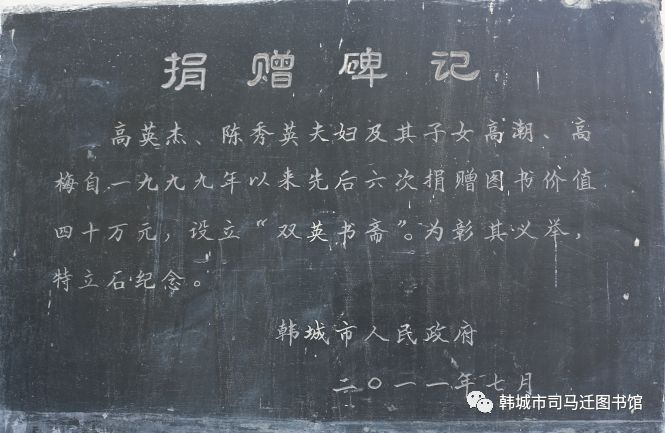 捐赠碑记
高英杰、陈秀英夫妇及其子女高潮、高
梅自一九九九年以来先后六次捐赠图书价值
四十万元，设立“双英书斋”。为彰其义举，
特立石纪念。
韩城市人民政府
二〇一一年七月
韩城市司马迁图书馆